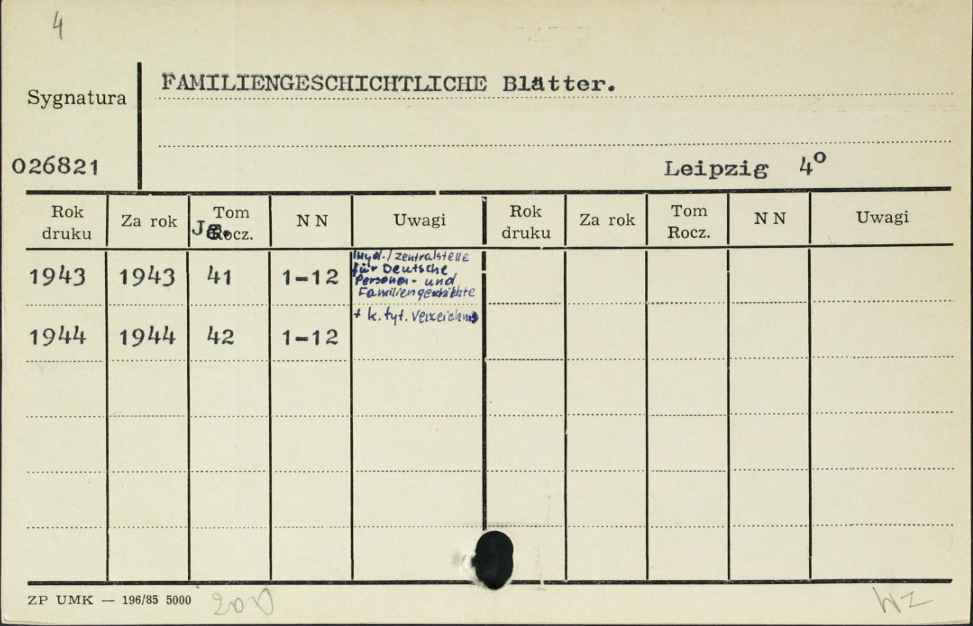 4
FAMILIENGESCHICHTLICHE Blätter.
Sygnatura
026821
Leipzig 4°
Rok druku Za rok Tom Rocz. N N Uwagi Rok druku Za rok Tom Rocz. N N Uwagi
1943 1943 41 1-12 Zentralstelle
für Deutsche
Personen- und
Familiengeschichte
1944 1944 42 1-12 + k. tyt. Verzeichnis
ZP UMK — 196/85 5000
WZ